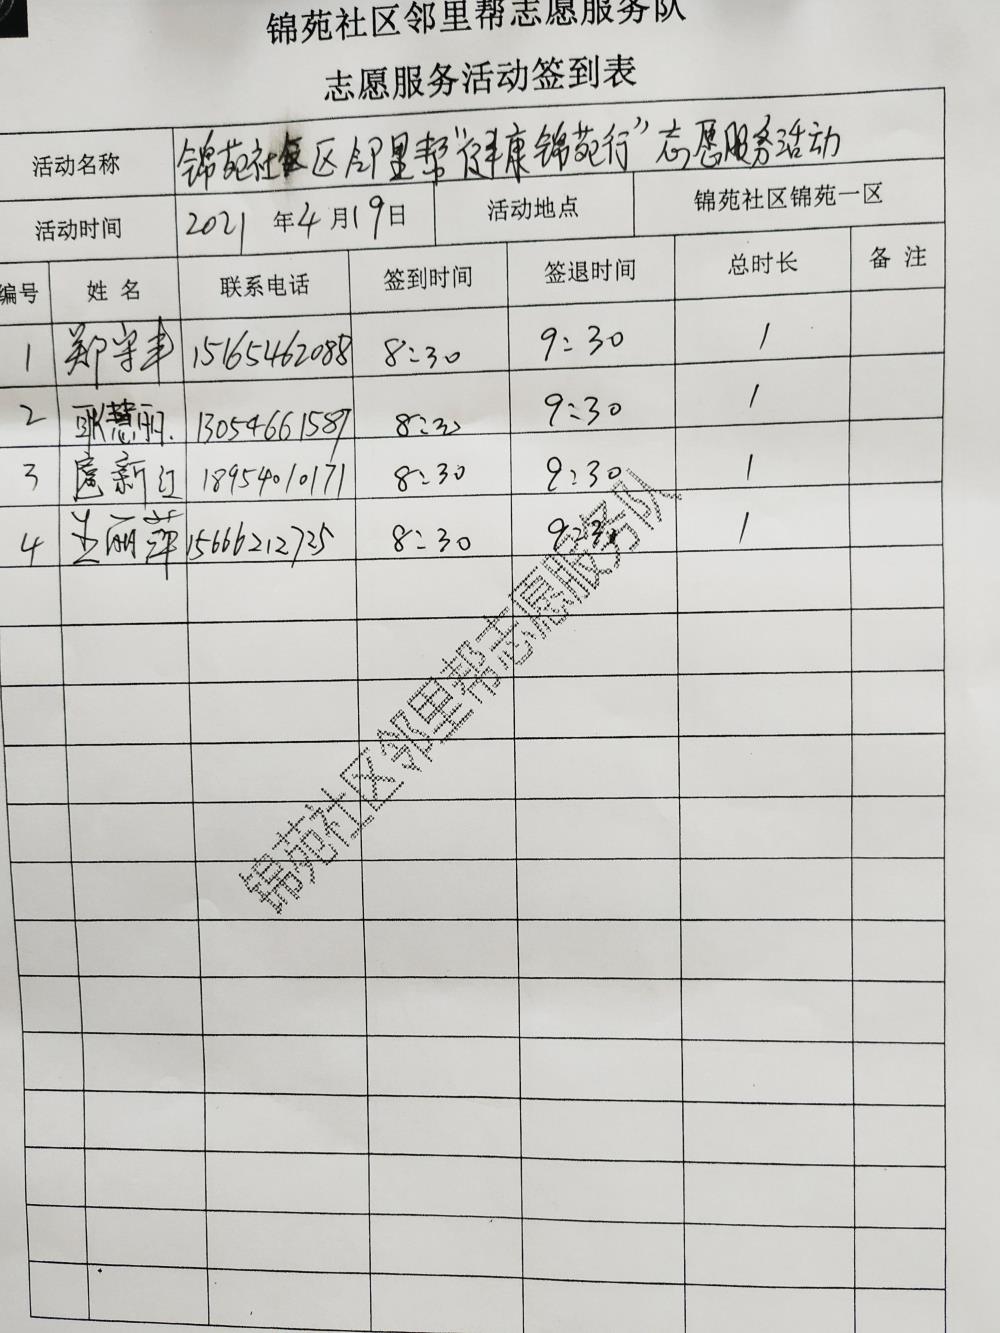 锦苑社区邻里帮志愿服务队
志愿服务活动签到表
活动名称 锦苑社区邻里帮“健康锦苑行”志愿服务活动
活动时间 2021年4月19日 活动地点 锦苑社区锦苑一区
编号 姓名 联系电话 签到时间 签退时间 总时长 备注
1 郑守丰 15165462088 8:30 9:30 1
2 耿慧丽 13054661587 8:30 9:30 1
3 扈新红 18954010171 8:30 9:30 1
4 丽萍 15666212725 8:30 9:30 1
锦苑社区邻里帮志愿服务队